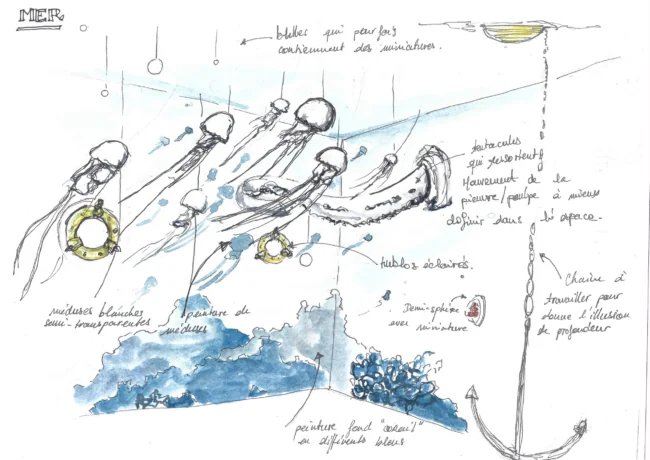 MER
bulles qui parfois
contiennent des miniatures.
tentacules
qui ressortent
Mouvement de la
pieuvre/poulpe à mieux
définir dans l'espace.
hublot éclairés.
Chaine à
travailler pour
donne l'illusion
de profondeur
méduses blanches
semi-transparentes
peinture de
méduses
Demi-sphère
avec miniature
peinture fond "corail"
en différents bleus